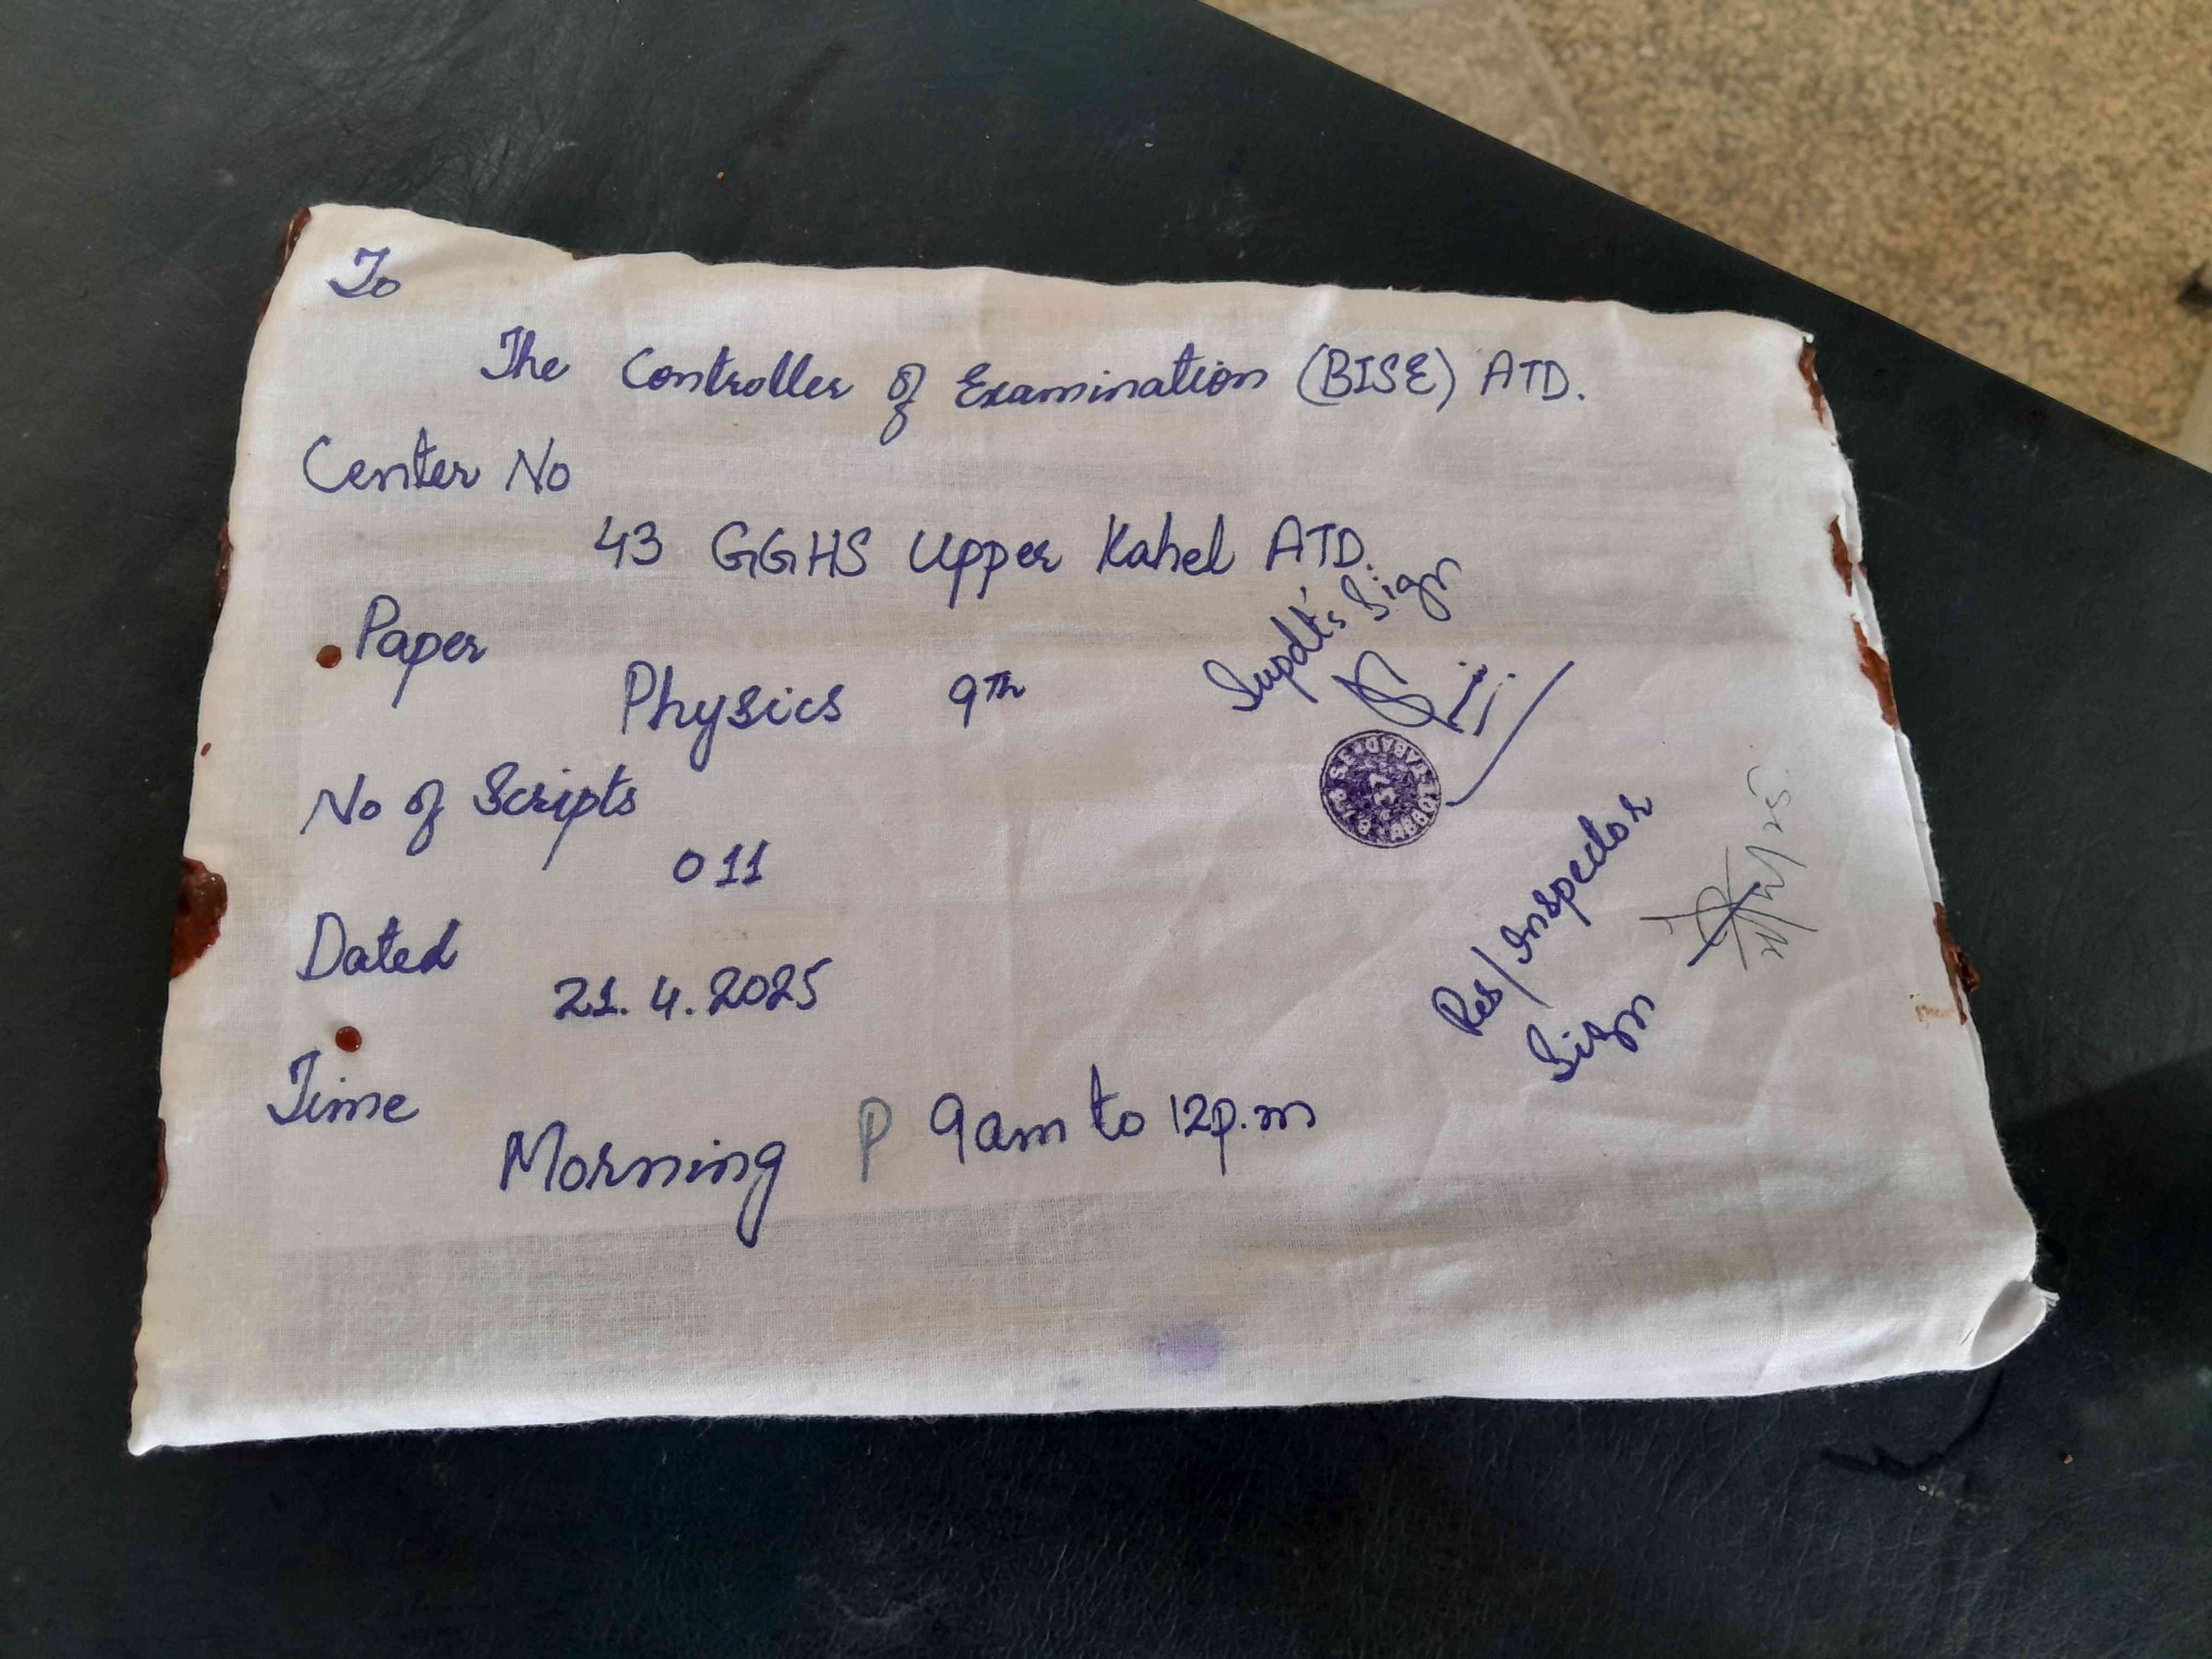 To
The Controller of Examination (BISE) ATD.
Center No
43 GGHS Upper Kahel ATD.
Paper
Physics 9Th
Supdt's Sign
No of Scripts
011
Dated
21.4.2025
Res/Inspector
Sign
Time
Morning P 9am to 12p.m